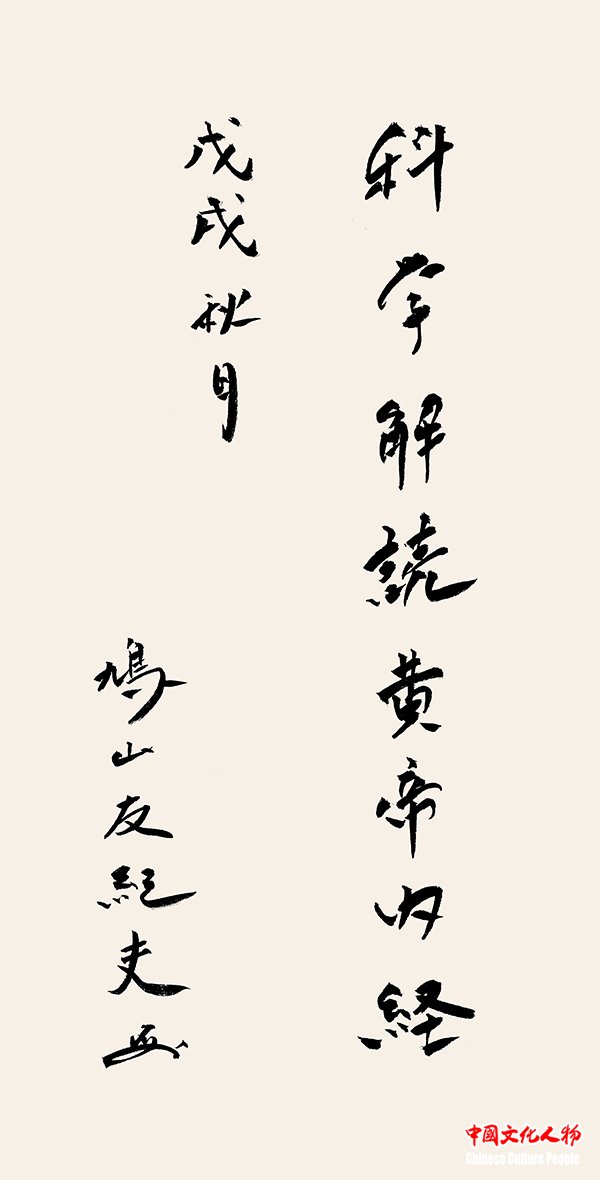 科学解読黄帝内経
戊戌秋月
鳩山友紀夫
中國文化人物
Chinese Culture People